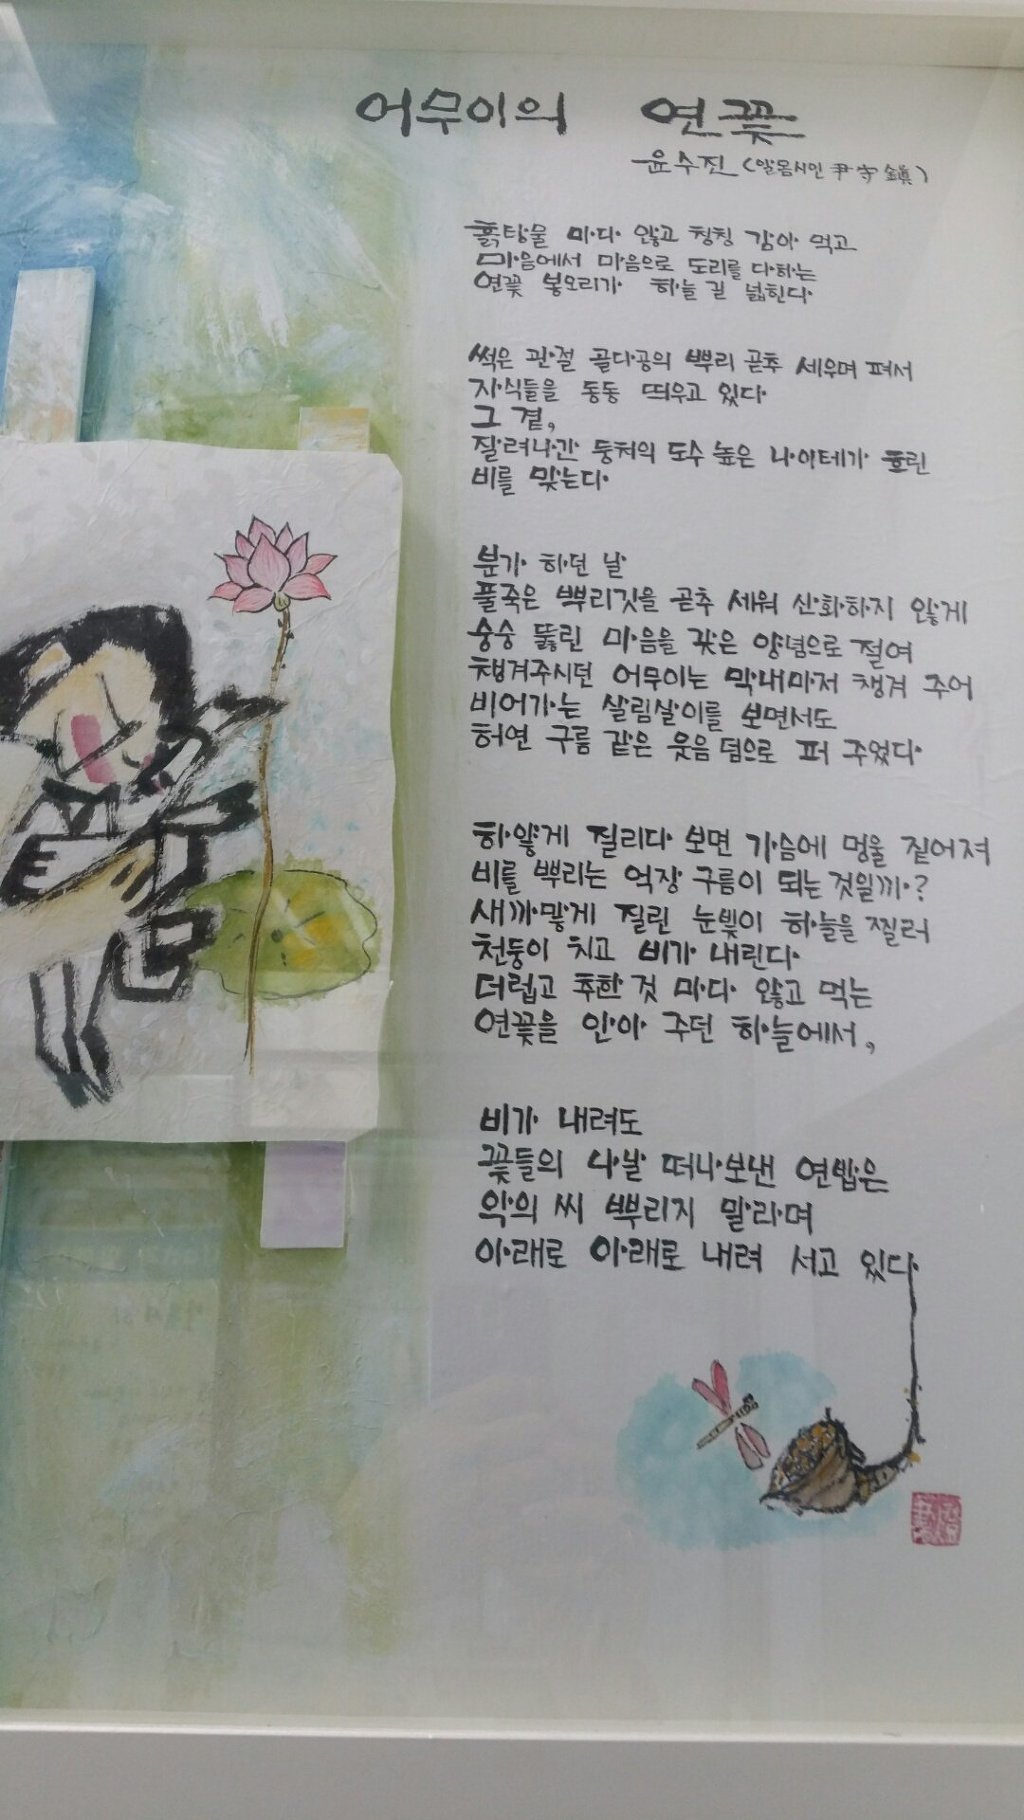 어무이의 연꽃
윤수진 (알몸시인 尹守鎭)
흙탕물 마다 않고 칭칭 감아 먹고
마음에서 마음으로 도리를 다하는
연꽃 봉오리가 하늘 길 넓힌다
썩은 관절 골다공의 뿌리 곧추 세우며 펴서
자식들을 동동 띄우고 있다
그 곁,
잘려나간 둥치의 도수 높은 나이테가 흐린
비를 맞는다
분가 하던 날
풀죽은 뿌리깃을 곧추 세워 산화하지 않게
숭숭 뚫린 마음을 갖은 양념으로 절여
챙겨주시던 어무이는 막내마저 챙겨 주어
비어가는 살림살이를 보면서도
허연 구름 같은 웃음 덤으로 퍼 주었다
하얗게 질리다 보면 가슴에 멍울 짙어져
비를 뿌리는 억장 구름이 되는 것일까?
새까맣게 질린 눈빛이 하늘을 찔러
천둥이 치고 비가 내린다
더럽고 추한 것 마다 않고 먹는
연꽃을 안아 주던 하늘에서,
비가 내려도
꽃들의 나날 떠나보낸 연밥은
악의 씨 뿌리지 말라며
아래로 아래로 내려 서고 있다